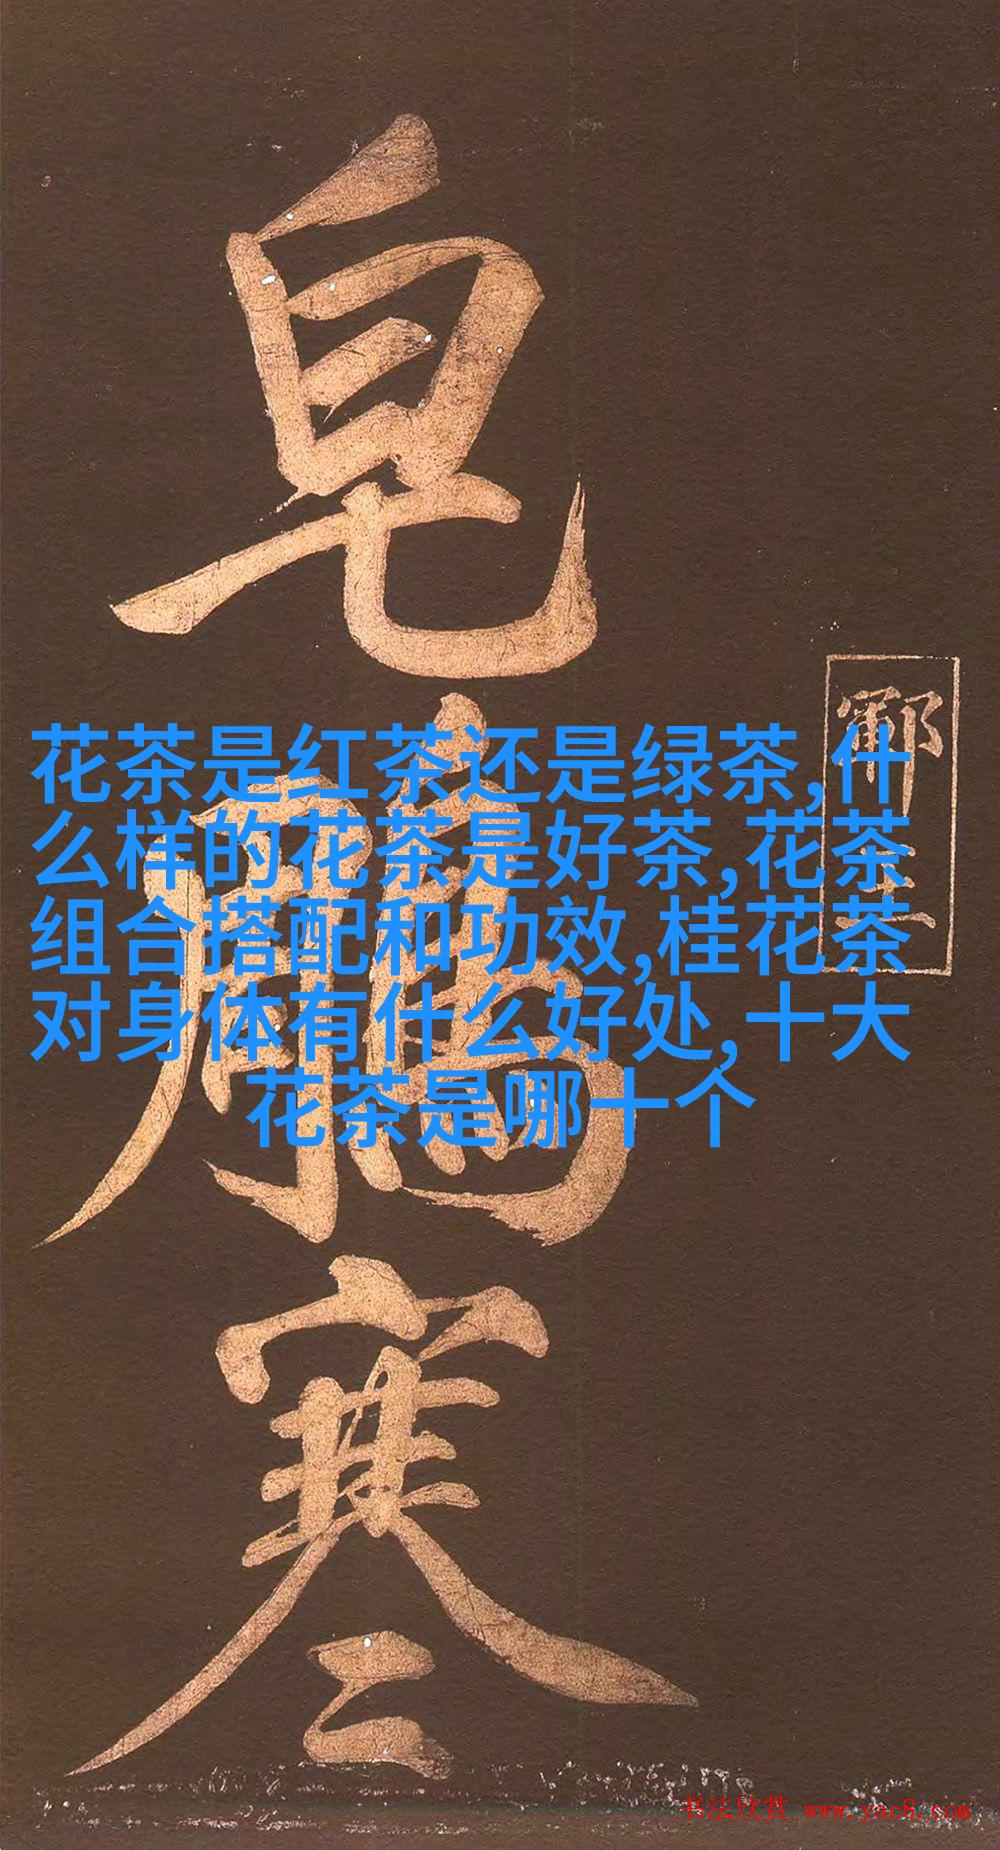 皂
鵰
寒
花茶是红茶还是绿茶,什
么样的花茶是好茶,花茶
组合搭配和功效,桂花茶
对身体有什么好处,十大
花茶是哪十个
书法欣赏 www.yac8.com